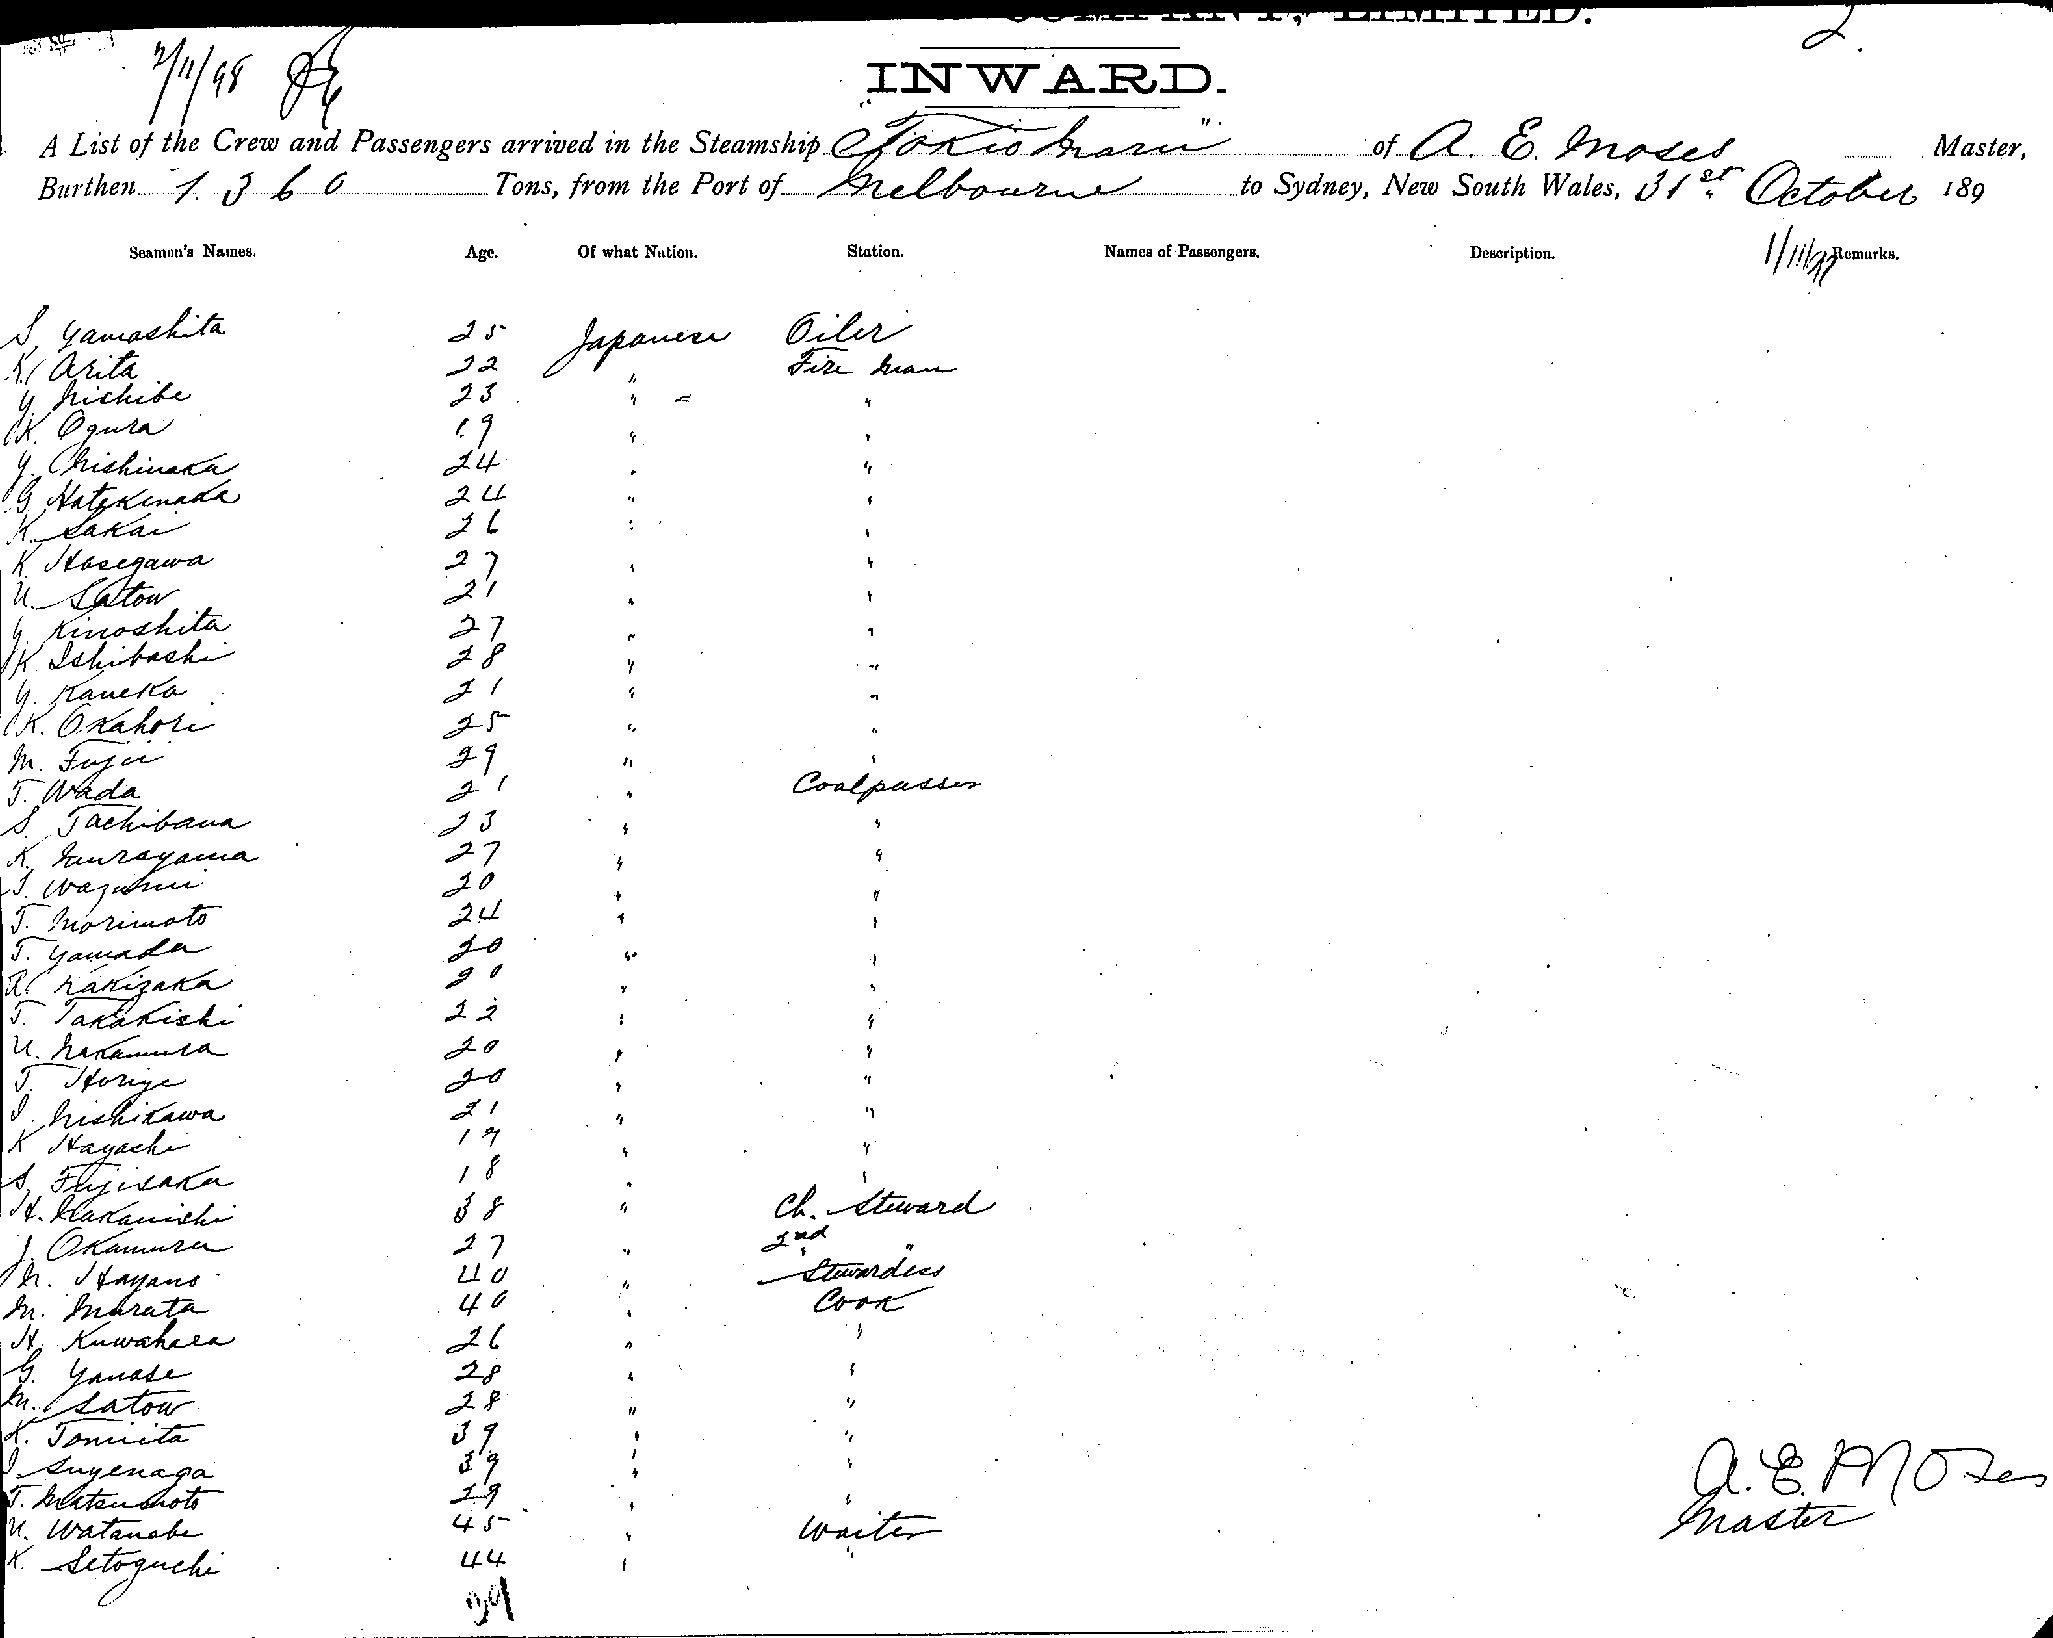 COMPANY, LIMITED.
2.
2/11/98
INWARD.
A List of the Crew and Passengers arrived in the Steamship "Tokio Maru" of A. E. Moses Master,
Burthen 1.360 Tons, from the Port of Melbourne to Sydney, New South Wales, 31st October 189
1/11/98
Seamen's Names. Age. Of what Nation. Station. Names of Passengers. Description. Remarks.
S. Yamashita 25 Japanese Oiler
K. Arita 22 " Fire man
Y. Nishibe 23 " = "
K. Ogura 19 " "
Y. Nishinaka 24 " "
G. Hatekenaka 24 " "
K. Sakai 26 " "
K. Hasegawa 27 " "
U. Satow 21 " "
Y. Kinoshita 27 " "
K. Ishibashi 28 " "
Y. Kaneko 21 " "
K. Okahori 25 " "
M. Fujii 29 " "
T. Wada 21 " Coalpasser
S. Tachibana 23 " "
K. Murayama 27 " "
S. Wazumi 20 " "
T. Morimoto 24 " "
T. Yamada 20 " "
R. Kakizaka 20 " "
T. Takakishi 22 " "
U. Nakamura 20 " "
T. Horiye 20 " "
I. Nishikawa 21 " "
K Hayashi 19 " "
S. Fujisaka 18 " "
H. Nakanishi 38 " Ch. Steward
J. Okamura 27 " 2nd "
N. Hayano 40 " Stewardess
M. Murata 40 " Cook
H. Kuwahara 26 " "
G. Yanase 28 " "
M. Satow 28 " "
K. Tomita 39 " "
I Suyenaga 39 " "
T. Matsumoto 29 " "
U. Watanabe 45 " Waiter
K. Setoguchi 44 " "
39
A. E. Moses
Master